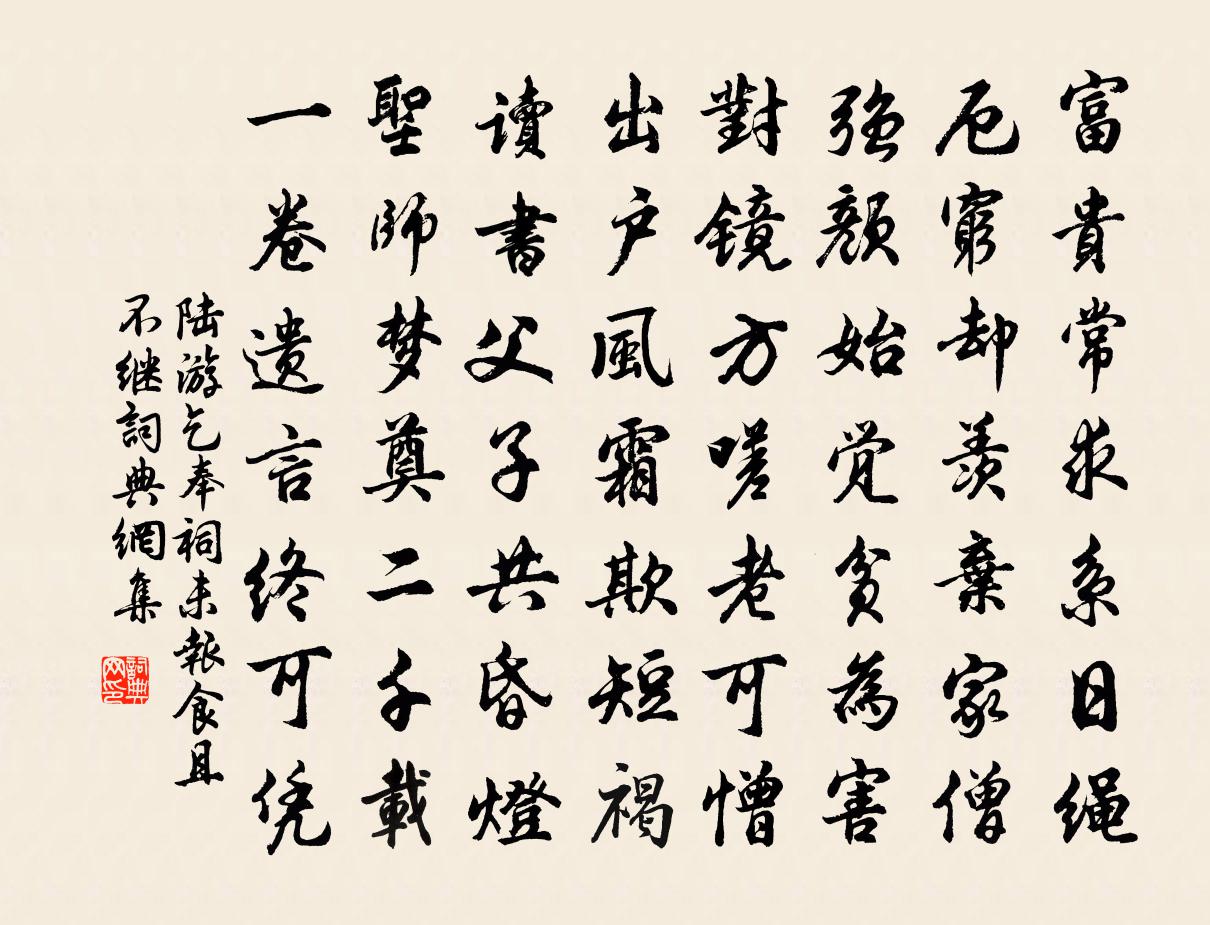 富貴常求系日绳
厄窮却羨棄家僧
强顔始觉貧為害
對镜方嗟老可憎
出户風霜欺短褐
讀書父子共昏燈
聖師梦奠二千載
一卷遗言终可凭
陆游乞奉祠未報食且
不继詞典網集
詞典
网印